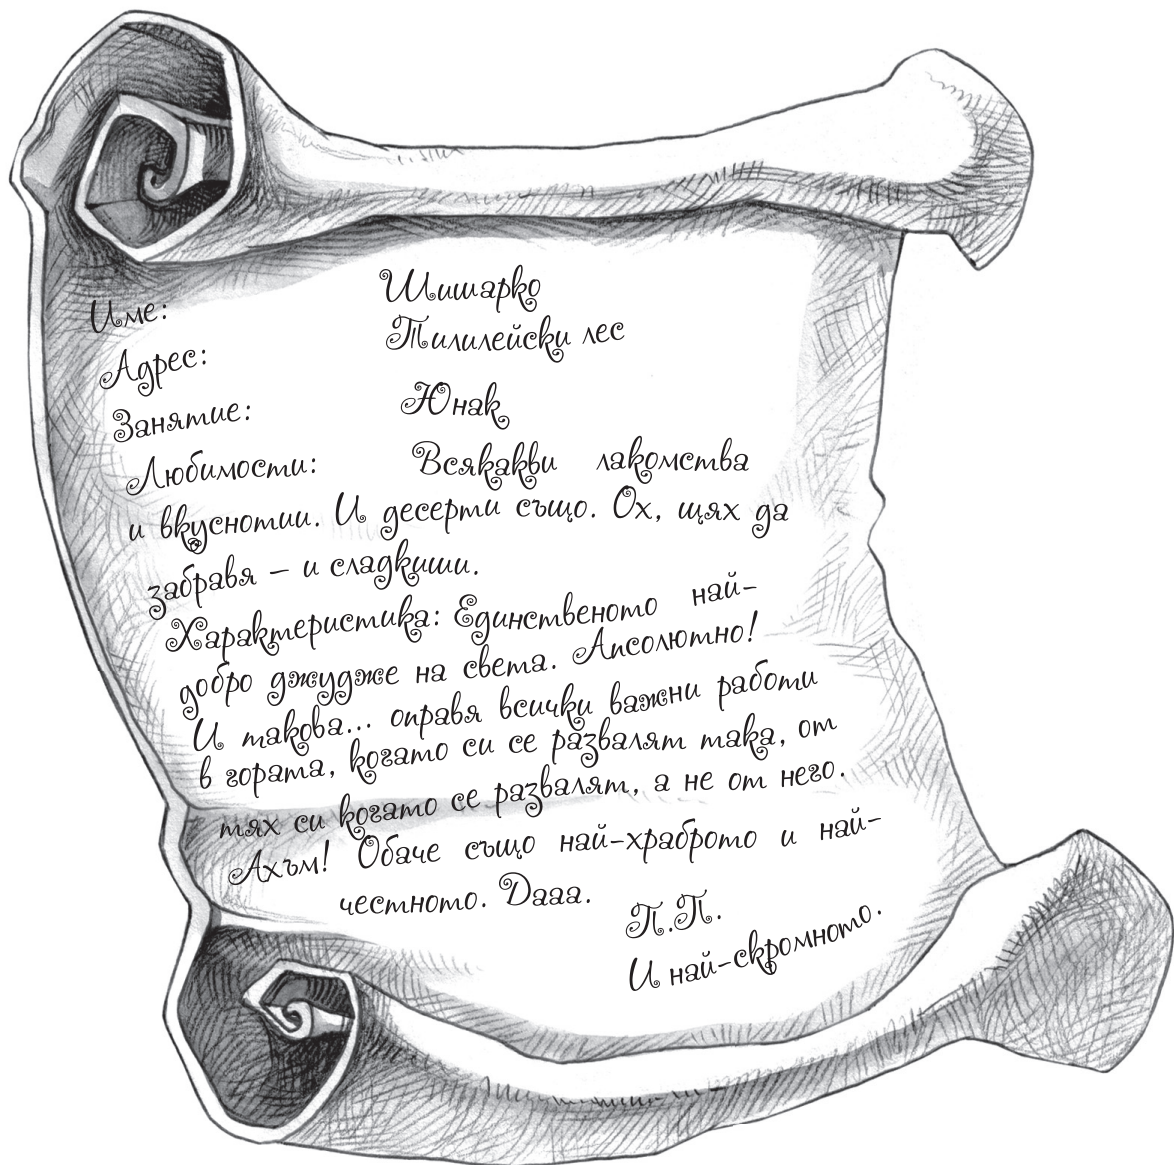 Име: Шишарко
Адрес: Тилилейски лес
Занятие: Юнак
Любимости: Всякакви лакомства
и вкуснотии. И десерти също. Ох, щях да
забравя – и сладкиши.
Характеристика: Единственото най-
добро джудже на света. Апсолютно!
И такова... оправя всички важни работи
в гората, когато си се развалят така, от
тях си когато се развалят, а не от него.
Ахъм! Обаче също най-храброто и най-
честното. Дааа.
П.П.
И най-скромното.